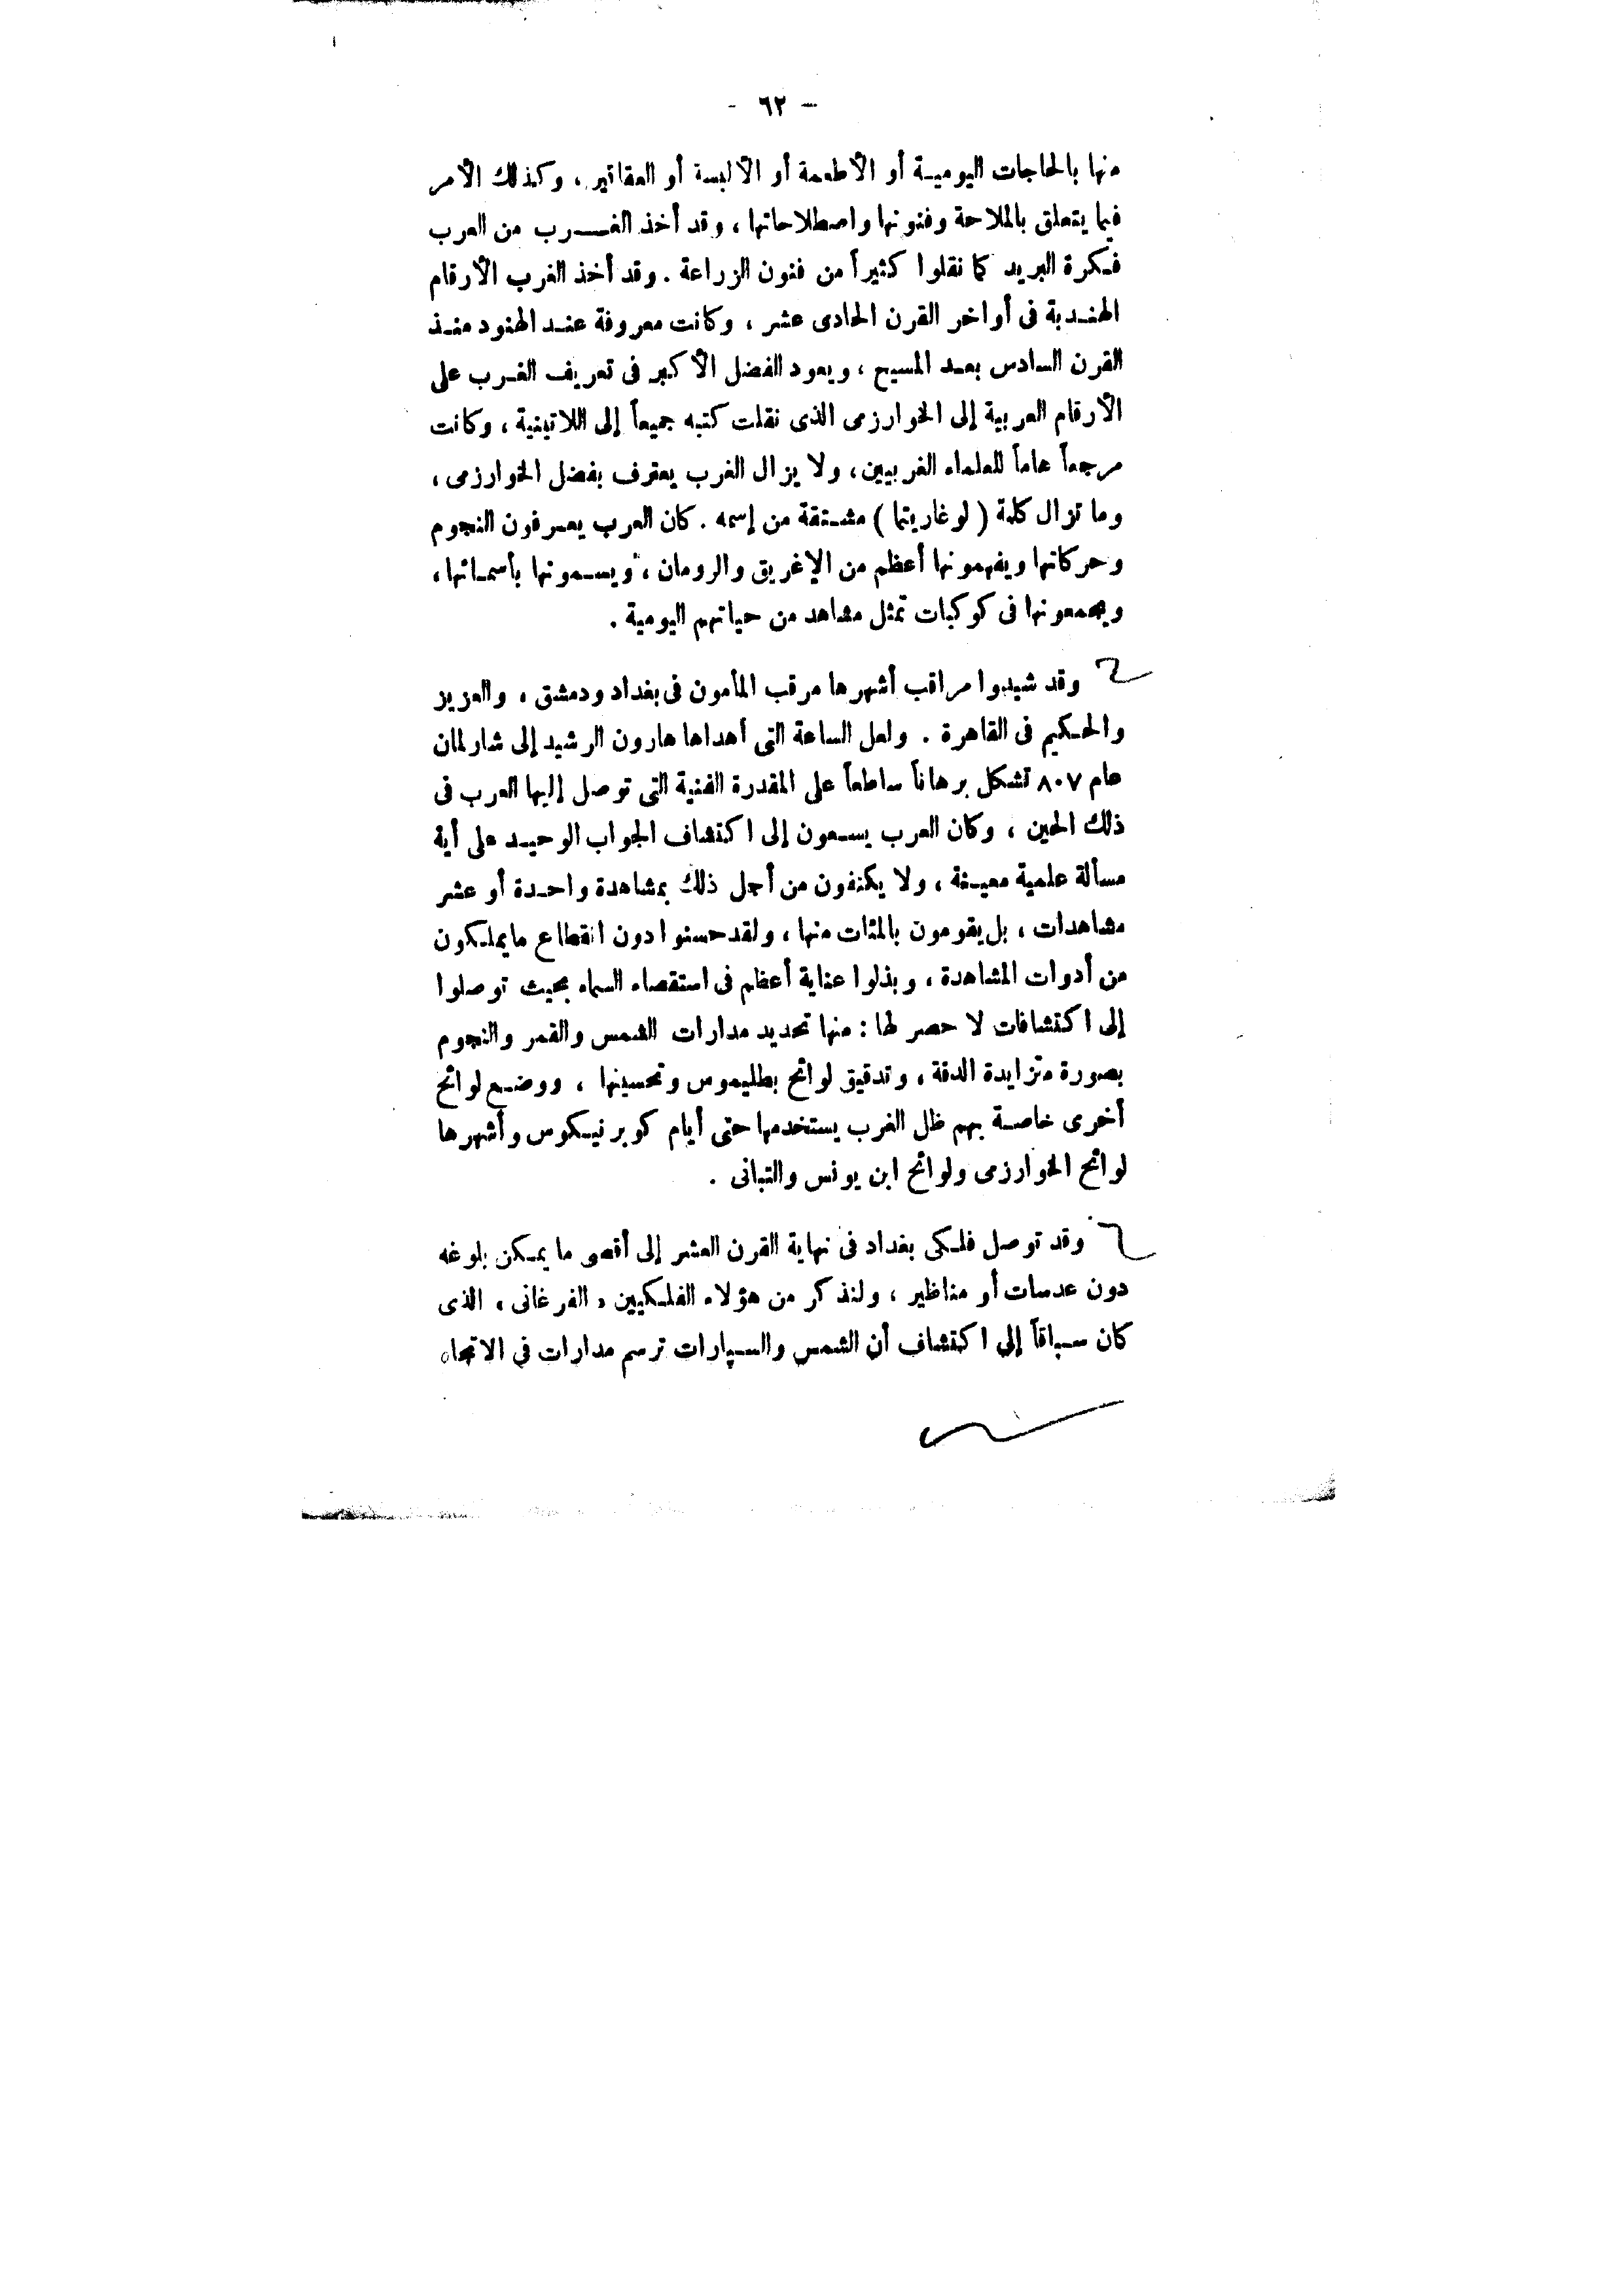 — ٦٢ -
منها بالحاجات اليومية أو الأطعمة أو الألبسة أو العقاقير ، وكذلك الأمر
فيما يتعلق بالملاحة وفنونها واصطلاحاتها ، وقد أخذ الغرب من العرب
فكرة البريد كما نقلوا كثيراً من فنون الزراعة . وقد أخذ الغرب الأرقام
الهندية فى أواخر القرن الحادى عشر ، وكانت معروفة عند الهنود منذ
القرن السادس بعد المسيح ، ويعود الفضل الأكبر فى تعريف الغرب على
الأرقام العربية إلى الخوارزمى الذى نقلت كتبه جميعاً إلى اللاتينية ، وكانت
مرجعاً هاماً للعلماء الغربيين ، ولا يزال الغرب يعترف بفضل الخوارزمى ،
وما تزال كلمة ( لوغاريتما ) مشتقة من إسمه . كان العرب يعرفون النجوم
وحركاتها ويفهمونها أعظم من الإغريق والرومان ، ويسمونها بأسمائها ،
ويجمعونها فى كوكبات تمثل مشاهد من حياتهم اليومية .
وقد شيدوا مراقب أشهرها مرقب المأمون فى بغداد ودمشق ، والعزيز
والحكيم فى القاهرة . ولعل الساعة التى أهداها هارون الرشيد إلى شارلمان
عام ٨٠٧ تشكل برهاناً ساطعاً على المقدرة الفنية التى توصل إليها العرب فى
ذلك الحين ، وكان العرب يسعون إلى اكتشاف الجواب الوحيد على أية
مسألة علمية معينة ، ولا يكتفون من أجل ذلك بمشاهدة واحدة أو عشر
مشاهدات ، بل يقومون بالمئات منها ، ولقد حسنوا دون انقطاع ما يملكون
من أدوات المشاهدة ، وبذلوا عناية أعظم فى استقصاء السماء بحيث توصلوا
إلى اكتشافات لا حصر لها : منها تحديد مدارات الشمس والقمر والنجوم
بصورة متزايدة الدقة ، وتدقيق لوائح بطليموس وتحسينها ، ووضع لوائح
أخرى خاصة بهم ظل الغرب يستخدمها حتى أيام كوبرنيكوس وأشهرها
لوائح الخوارزمى ولوائح ابن يونس والتبانى .
وقد توصل فلكى بغداد فى نهاية القرن العشر إلى أقصى ما يمكن بلوغه
دون عدسات أو مناظير ، ولنذكر من هؤلاء الفلكيين « الفرغانى » الذى
كان سباقاً إلى اكتشاف أن الشمس والسيارات ترسم مدارات في الاتجاه